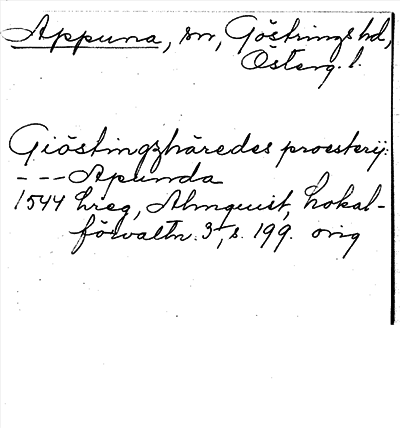 Appuna, sn, Göstrings hd,
Österg. l.
Giöstingzhäredes proesterij:
--- Apunda
1544 hreg, Almquist, Lokal-
förvaltn. 3, s. 199. orig